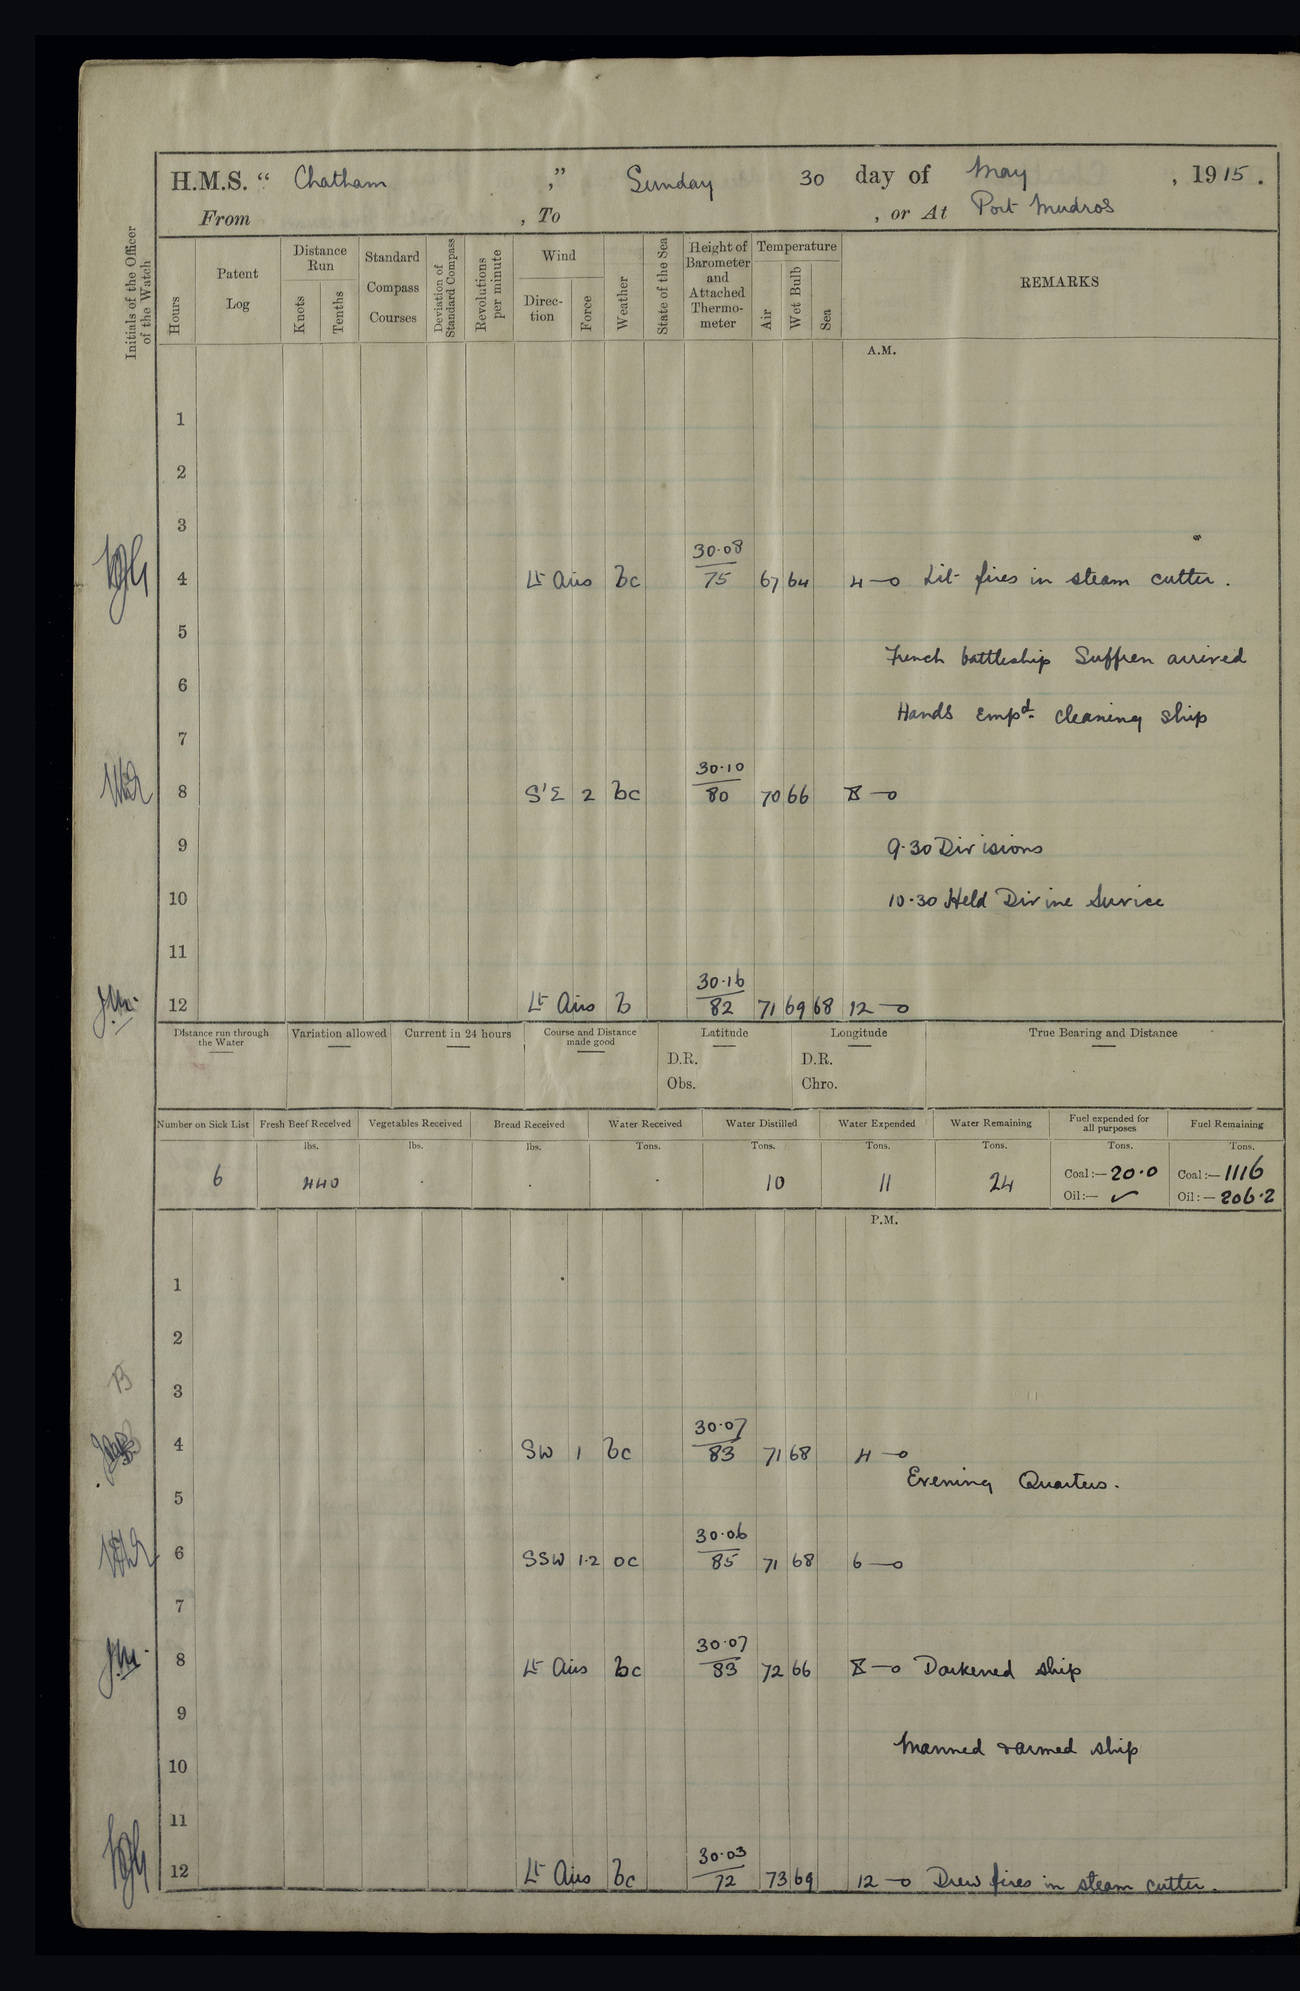 H.M.S. “ Chatham ,” Sunday 30 day of May , 1915 .
From , To , or At Port Mudros
Initials of the Officer of the Watch
Hours
Patent Log
Distance Run
Knots
Tenths
Standard Compass Courses
Deviation of Standard Compass
Revolutions per minute
Wind
Direc-tion
Force
Weather
State of the Sea
Height of Barometer and Attached Thermo-meter
Temperature
Air
Wet Bulb
Sea
REMARKS
A.M.
1
2
3
30.08
4 Lt Airs bc 75 67 64 4—0 Lit fires in steam cutter.
5
French battleship Suffren arrived
6
Hands empd. cleaning ship
7
30.10
8 S'E 2 bc 80 70 66 8—0
9 9.30 Divisions
10 10.30 Held Divine Service
11
30.16
J.M. 12 Lt Airs b 82 71 69 68 12—0
Distance run through the Water Variation allowed Current in 24 hours Course and Distance made good Latitude Longitude True Bearing and Distance
D.R. D.R.
Obs. Chro.
Number on Sick List Fresh Beef Received Vegetables Received Bread Received Water Received Water Distilled Water Expended Water Remaining Fuel expended for all purposes Fuel Remaining
lbs. lbs. lbs. Tons. Tons. Tons. Tons. Tons. Tons.
6 440 . . . 10 11 24 Coal:—20.0 Coal:—1116
Oil:— ✓ Oil:—206.2
P.M.
1
2
B
3
30.07
4 SW 1 bc 83 71 68 4—0
Evening Quarters.
5
30.06
6 SSW 1.2 oc 85 71 68 6—0
7
30.07
J.M. 8 Lt Airs bc 83 72 66 8—0 Darkened ship
9
Manned & armed ship
10
11
30.03
12 Lt Airs bc 72 73 69 12—0 Drew fires in steam cutter.